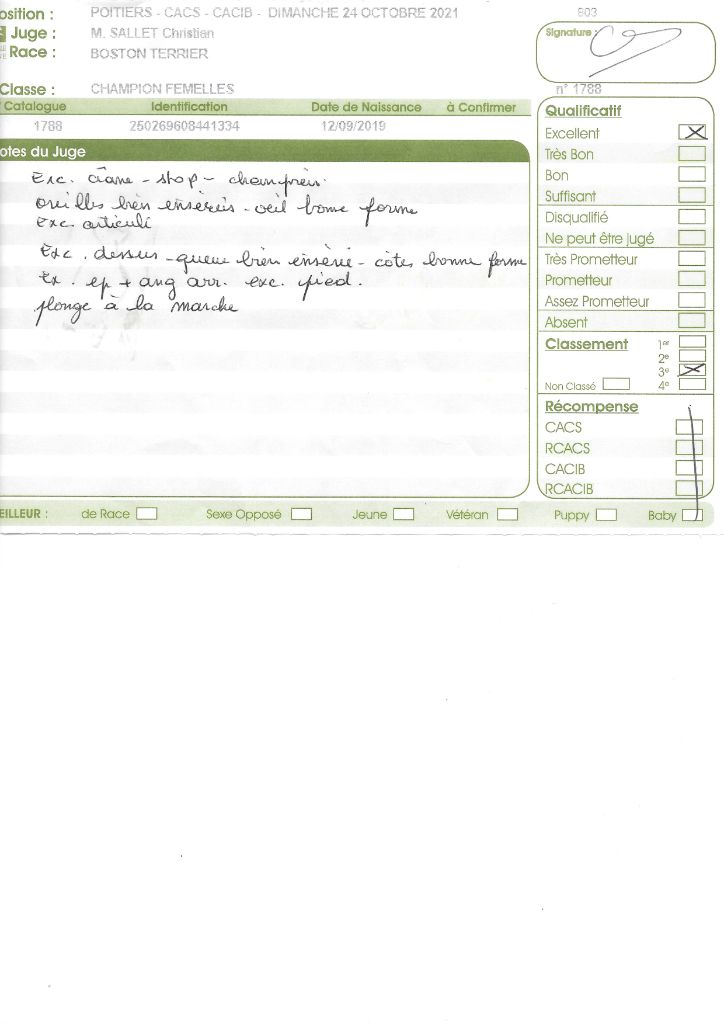 osition : POITIERS - CACS - CACIB - DIMANCHE 24 OCTOBRE 2021 803
Juge : M. SALLET Christian
Race : BOSTON TERRIER
Signature :
Classe : CHAMPION FEMELLES n° 1788
Catalogue Identification Date de Naissance à Confirmer
1788 250269608441334 12/09/2019
otes du Juge
Exc. crâne - stop - chanfrein.
oreilles bien insérées - oeil bonne forme
Exc. articulé
Exc. dessus - queue bien insérée - côtes bonne forme
Ex. ep + ang arr. exc. pied.
plonge à la marche
Qualificatif
Excellent
Très Bon
Bon
Suffisant
Disqualifié
Ne peut être jugé
Très Prometteur
Prometteur
Assez Prometteur
Absent
Classement 1er
2e
3e
Non Classé 4e
Récompense
CACS
RCACS
CACIB
RCACIB
EILLEUR : de Race Sexe Opposé Jeune Vétéran Puppy Baby